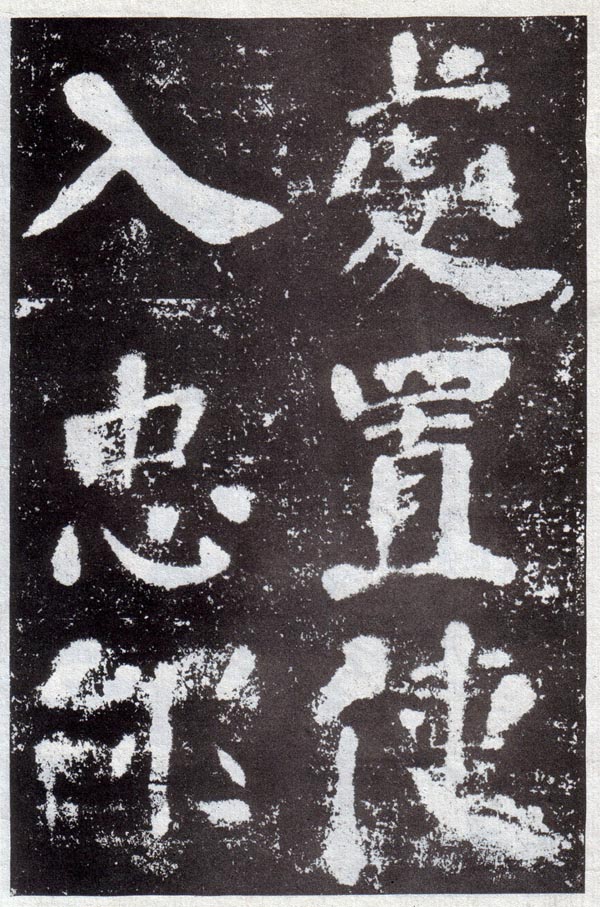 處置使
入忠